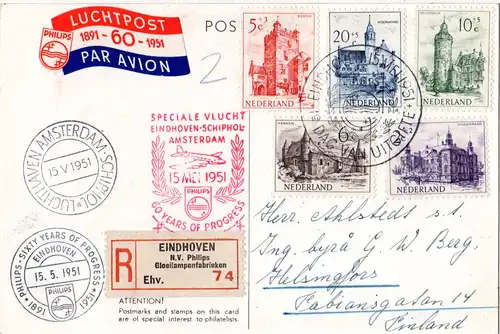 LUCHTPOST
1891-60-1951
PHILIPS
PAR AVION
POS
2
5c+3
BERGH
NEDERLAND
20c+5
NEDERLAND
10c+5
NEDERLAND
6c
HERNEN
NEDERLAND
NEDERLAND
EINDHOVEN
DAG VAN UITGIFTE
SPECIALE VLUCHT
EINDHOVEN-SCHIPHOL-
AMSTERDAM
15 MEI 1951
PHILIPS
60 YEARS OF PROGRESS
LUCHTHAVEN AMSTERDAM-SCHIPHOL
15 V 1951
1891-PHILIPS-SIXTY YEARS OF PROGRESS-1951
EINDHOVEN
15.5.1951
PHILIPS
R
EINDHOVEN
N.V. Philips
Gloeilampenfabrieken
Ehv. 74
ATTENTION!
Postmarks and stamps on this card
are of special interest to philatelists.
Herr Ahlstedts s.t.
Ing. byrå G W. Berg.
Helsingfors
Fabiansgatan 14
Finland